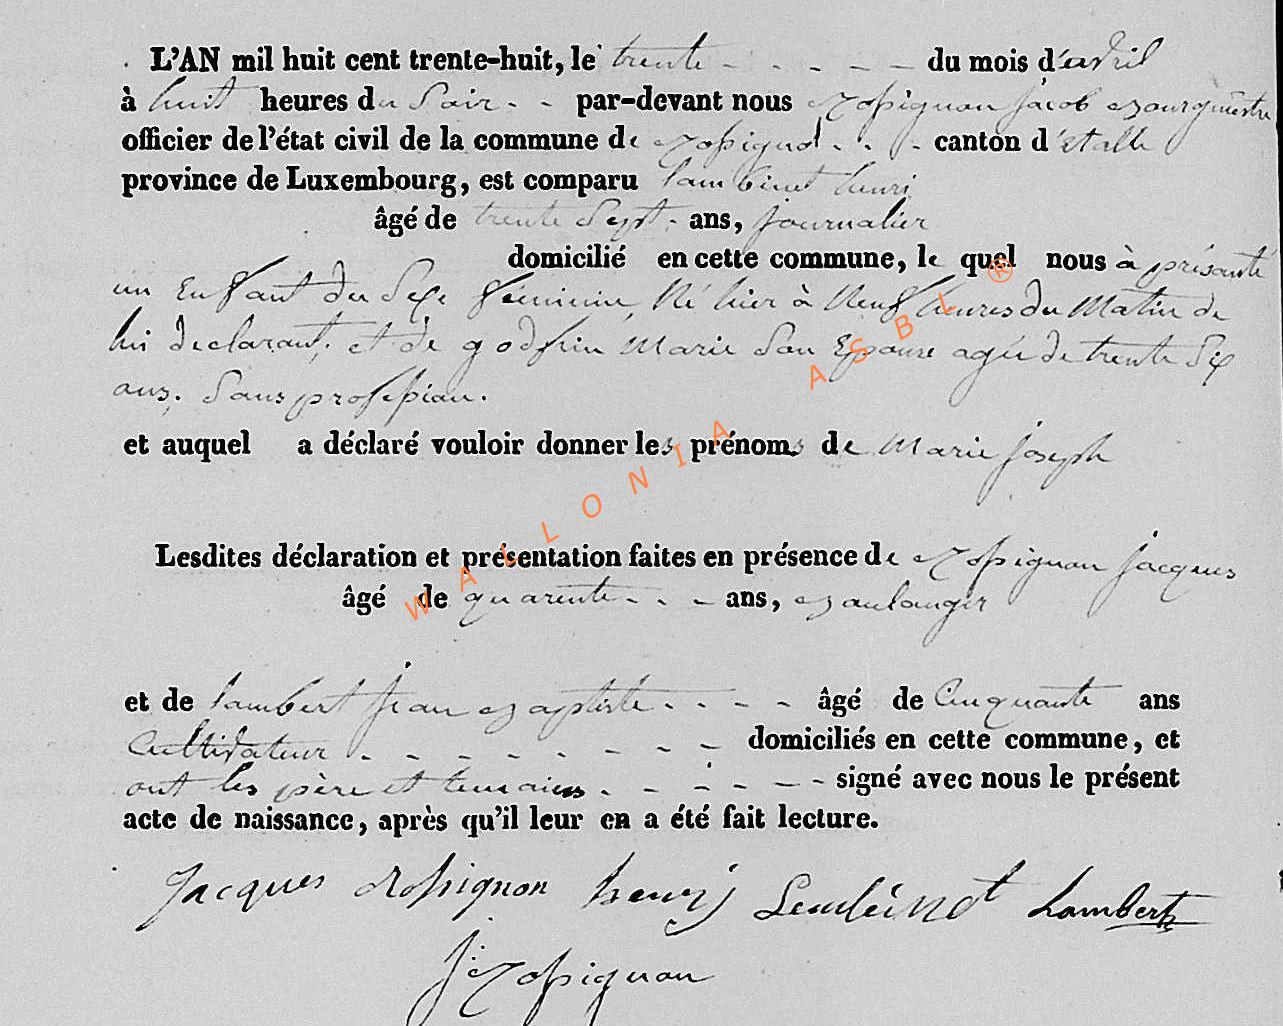 L'AN mil huit cent trente-huit, le trente - - - - - du mois d'avril
à huit heures du Soir - - par-devant nous Rossignon jacob Bourgmestre
officier de l'état civil de la commune de Rossignol - - - canton d'etalle
province de Luxembourg, est comparu lambinet henri
âgé de trente Sept - ans, journalier
domicilié en cette commune, le quel nous à présenté
un Enfant du Sexe féminin, Né hier à Neuf heures du Matin de
lui declarant, et de godfrin Marie Son Epouse agée de trente Six
ans. Sans profession.
et auquel a déclaré vouloir donner les prénoms de Marie joseph
Lesdites déclaration et présentation faites en présence de Rossignon jacques
âgé de quarente - - - ans, Boulanger
et de lambert jean Baptiste - - - - âgé de Cinquante ans
Cultivateur - - - - - - - - - domiciliés en cette commune, et
ont les père et temoins - - - - - - signé avec nous le présent
acte de naissance, après qu'il leur en a été fait lecture.
Jacques Rossignon henrij Lembinot Lambert
J: Rossignon
WALLONIA ASBL ®